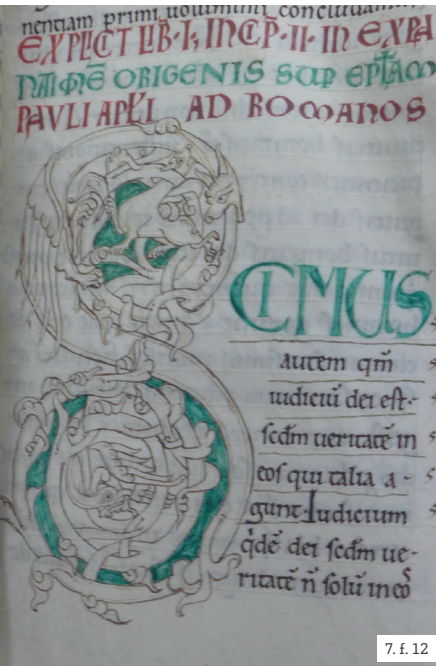 nentiam primi uolumini concludam
EXPLICIT LIB·I· INCIP̄·II· IN EXPLA
NATIONĒ ORIGENIS SUP EPĪAM
PAVLI APĪI AD ROMANOS
SCIMUS
autem qm̄
iudiciū dei est·
scdm ueritatē in
eos qui talia a-
gunt·Iudicium
qdē dei scdm ue-
ritatē n̄ solū in eos
7. f. 12